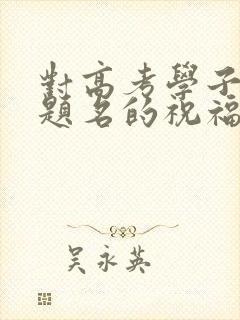 對高考學子
題名的祝福
吴永英